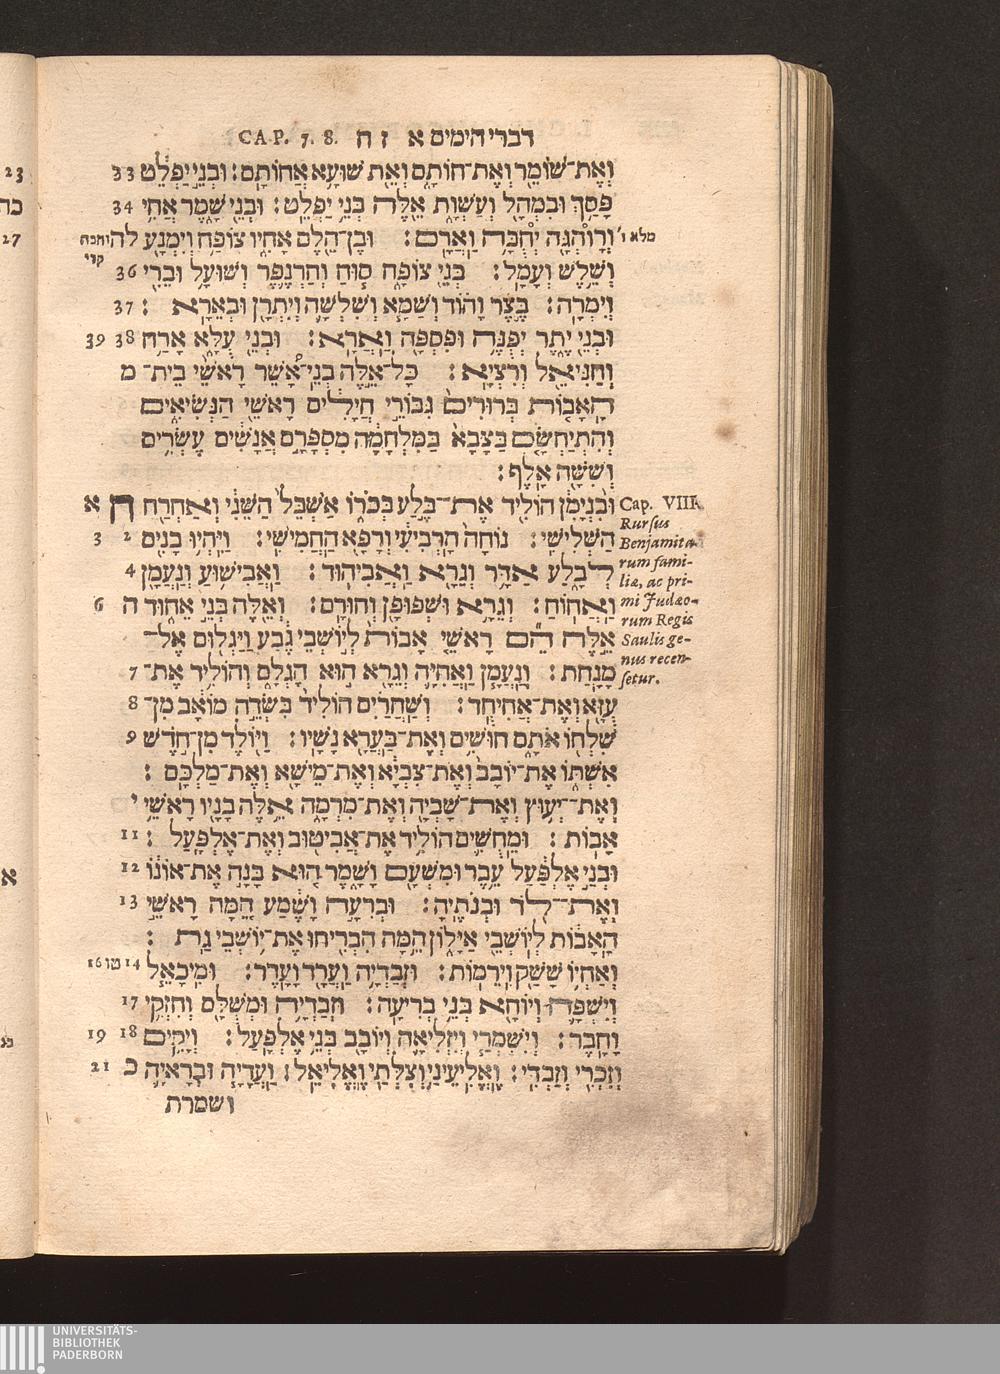 דברי הימים א ז ח CAP. 7. 8.
וְאֶת־שׁוֹמֵר וְאֶת־חוֹתָם וְאֵת שׁוּעָא אֲחוֹתָם׃ וּבְנֵי יַפְלֵט 33
פָּסַךְ וּבִמְהָל וְעַשְׁוָת אֵלֶּה בְּנֵי יַפְלֵט׃ וּבְנֵי שָׁמֶר אֲחִי 34
מלא ו' וְרָוהְגָּה יְחֻבָּה וַאֲרָם׃ וּבֶן־הֵלֶם אָחִיו צוֹפַח וְיִמְנָע לה
קרי
וְשֵׁלֶשׁ וְעָמָל׃ בְּנֵי צוֹפָח סוּחַ וְחַרְנֶפֶר וְשׁוּעָל וּבֵרִי 36
וְיִמְרָה׃ בֶּצֶר וָהוֹד וְשַׁמָּא וְשִׁלְשָׁה וְיִתְרָן וּבְאֵרָא׃ 37
וּבְנֵי יֶתֶר יְפֻנֶּה וּפִסְפָּה וַאֲרָא׃ וּבְנֵי עֻלָּא אָרַח 38 39
וְחַנִּיאֵל וְרִצְיָא׃ כָּל־אֵלֶּה בְנֵי־אָשֵׁר רָאשֵׁי בֵית־ מ
הָאָבוֹת בְּרוּרִים גִּבּוֹרֵי חֲיָלִים רָאשֵׁי הַנְּשִׂיאִים
וְהִתְיַחְשָׂם בַּצָּבָא בַּמִּלְחָמָה מִסְפָּרָם אֲנָשִׁים עֶשְׂרִים
וְשִׁשָּׁה אָלֶף׃
Cap. VIII.
וּבִנְיָמִן הוֹלִיד אֶת־בֶּלַע בְּכֹרוֹ אַשְׁבֵּל הַשֵּׁנִי וְאַחְרַח ח א
Rursus
הַשְּׁלִישִׁי׃ נוֹחָה הָרְבִיעִי וְרָפָא הַחֲמִישִׁי׃ וַיִּהְיוּ בָנִים 2 3
Benjamita-
rum fami-
לְבָלַע אַדָּר וְגֵרָא וַאֲבִיהוּד׃ וַאֲבִישׁוּעַ וְנַעֲמָן 4
liæ, ac pri-
וַאֲחוֹחַ׃ וְגֵרָא וּשְׁפוּפָן וְחוּרָם׃ וְאֵלֶּה בְּנֵי אֵחוּד ה 6
mi Judæo-
rum Regis
אֵלֶּה הֵם רָאשֵׁי אָבוֹת לְיוֹשְׁבֵי גֶבַע וַיַּגְלוּם אֶל־
Saulis ge-
nus recen-
מָנָחַת׃ וְנַעֲמָן וַאֲחִיָּה וְגֵרָא הוּא הֶגְלָם וְהוֹלִיד אֶת־ 7
setur.
עֻזָּא וְאֶת־אֲחִיחֻד׃ וְשַׁחֲרַיִם הוֹלִיד בִּשְׂדֵה מוֹאָב מִן־ 8
שִׁלְחוֹ אֹתָם חוּשִׁים וְאֶת־בַּעֲרָא נָשָׁיו׃ וַיּוֹלֶד מִן־חֹדֶשׁ 9
אִשְׁתּוֹ אֶת־יוֹבָב וְאֶת־צִבְיָא וְאֶת־מֵישָׁא וְאֶת־מַלְכָּם׃
וְאֶת־יְעוּץ וְאֶת־שָׂכְיָה וְאֶת־מִרְמָה אֵלֶּה בָנָיו רָאשֵׁי י
אָבוֹת׃ וּמֵחֻשִׁים הוֹלִיד אֶת־אֲבִיטוּב וְאֶת־אֶלְפָּעַל׃ 11
וּבְנֵי אֶלְפַּעַל עֵבֶר וּמִשְׁעָם וָשָׁמֶר הוּא בָּנָה אֶת־אוֹנוֹ 12
וְאֶת־לֹד וּבְנֹתֶיהָ׃ וּבְרִעָה וָשֶׁמַע הֵמָּה רָאשֵׁי 13
הָאָבוֹת לְיוֹשְׁבֵי אַיָּלוֹן הֵמָּה הִבְרִיחוּ אֶת־יוֹשְׁבֵי גַת׃
וְאַחְיוֹ שָׁשָׁק וִירֵמוֹת׃ וּזְבַדְיָה וַעֲרָד וָעָדֶר׃ וּמִיכָאֵל 14 טו 16
וְיִשְׁפָּה וְיוֹחָא בְּנֵי בְרִיעָה׃ וּזְבַדְיָה וּמְשֻׁלָּם וְחִזְקִי 17
וָחָבֶר׃ וְיִשְׁמְרַי וְיִזְלִיאָה וְיוֹבָב בְּנֵי אֶלְפָּעַל׃ וְיָקִים 18 19
וְזִכְרִי וְזַבְדִּי׃ וֶאֱלִיעֵינַי וְצִלְּתַי וֶאֱלִיאֵל׃ וַעֲדָיָה וּבְרָאיָה כ 21
ושמרת
23
27
UNIVERSITÄTS-
BIBLIOTHEK
PADERBORN